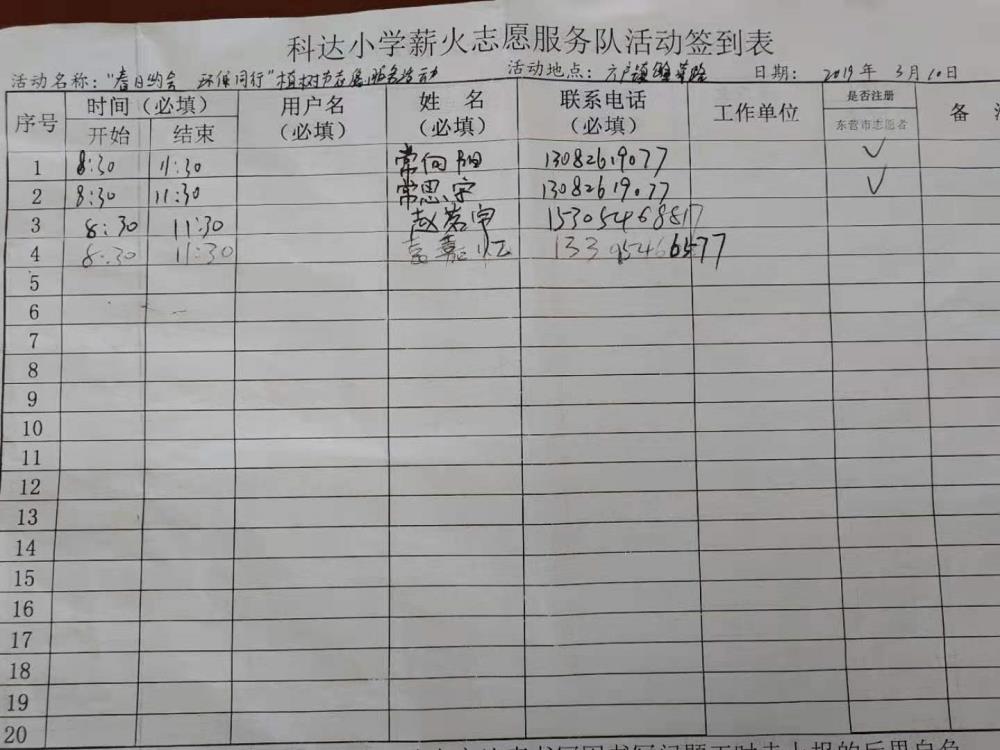 科达小学薪火志愿服务队活动签到表
活动名称：“春日约会 环保同行”植树志愿服务活动 活动地点：六户镇 日期：2019年3月10日
序号 时间（必填） 用户名（必填） 姓名（必填） 联系电话（必填） 工作单位 是否注册东营市志愿者 备
开始 结束
1 8:30 11:30 常向阳 13082619077 ✓
2 8:30 11:30 常思宇 13082619077 ✓
3 8:30 11:30 赵 15305468817
4 8:30 11:30 嘉 13395466577
5
6
7
8
9
10
11
12
13
14
15
16
17
18
19
20